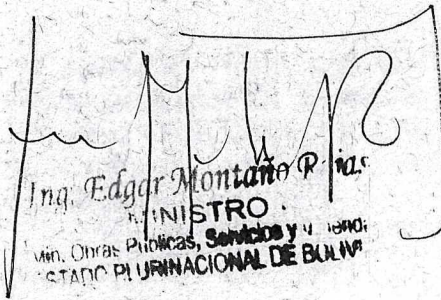 Ing. Edgar Montaño R ias
MINISTRO
Min. Obras Públicas, Servicios y
ESTADO PLURINACIONAL DE BOLIVIA